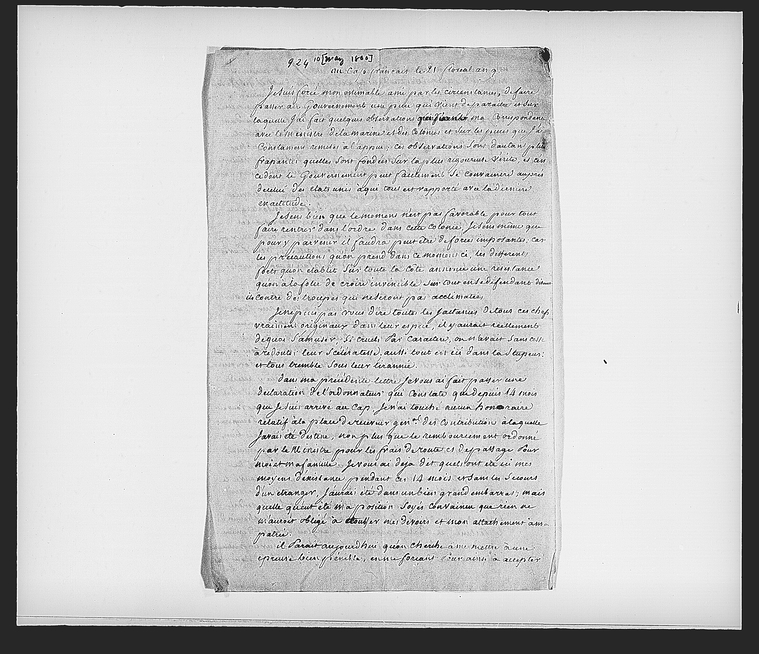 924 10 [May 1800]
au Cap français le 21 floréal an 9
Je suis forcé mon estimable ami par les circonstances, de faire
passer au Gouvernement une pièce qui vient de paraitre et sur
laquelle j'ai fait quelques observations ma Correspondance
avec le ministre de la marine et des Colonies et sur les pieces que j'ai
Constament remises à l'appui; ces observations sont d'autant plus
frapantes quelles sont fondées sur la plus rigoureuse vérité et
le Gouvernement peut facilement se convaincre auprès
de celui des etats unis à qui tout est rapporté avec la derniere
exactitude.
Je sens bien que le moment n'est pas favorable pour tout
faire rentrer dans l'ordre dans cette colonie, Je sens même que
pour y parvenir il faudra peut être de forces imposantes, car
les précautions qu'on prend dans ce moment ci, les differents
forts qu'on établit sur toute la côte annonce une resistance
qu'on à la folie de croire invincible surtout en se défendant
contre des troupes qui ne seront pas acclimatées
Je ne puis pas vous dire toutes les de tous ces chefs
vraiment originaux dans leur espèce, il y aurait réellement
de quoi s'amuser, si cruels par caractère, on n'avait sans cesse
à redouter leur scélératesse, aussi tout est ici dans la stupeur
et tous tremble sous leur tirannie.
Dans ma précédente lettre Je vous ai fait passer une
declaration de l'ordonnateur qui constate que depuis 14 mois
que Je suis arrivé au Cap, Je n'ai touché aucun honoraire
relatif à la place de receveur gen.al des Contribution à laquelle
J'avais été destiné, non plus que le remboursement ordonné
par le Ministre pour les frais de route et de passage pour
moi et ma famille. Je vous ai deja dit quels ont été ici mes
moyens d'existance pendant ces 14 mois et sans les secours
d'un etranger, J'aurai été dans un bien grand embarras; mais
quelle qu'eut été ma position soyez convaincu que rien ne
m'auroit obligé à etouffer mes devoirs et mon attachement à ma
patrie.
il Parait aujourdhui qu'on cherche à me mettre à une
epreuve bien pénible, en me forçant pour ainsi à accepter